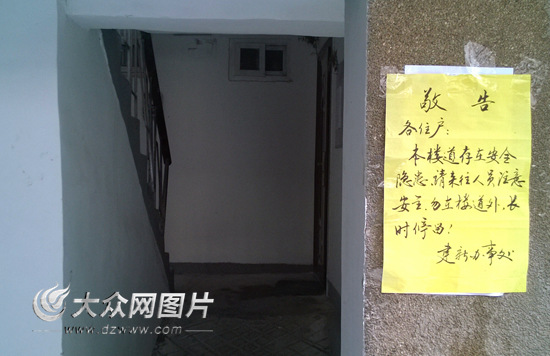 敬告
各住户:
本楼道存在安全
隐患,请来往人员注意
安全,勿在楼道外,长
时停留!
建新办事处
大众网图片
www.dzwww.com